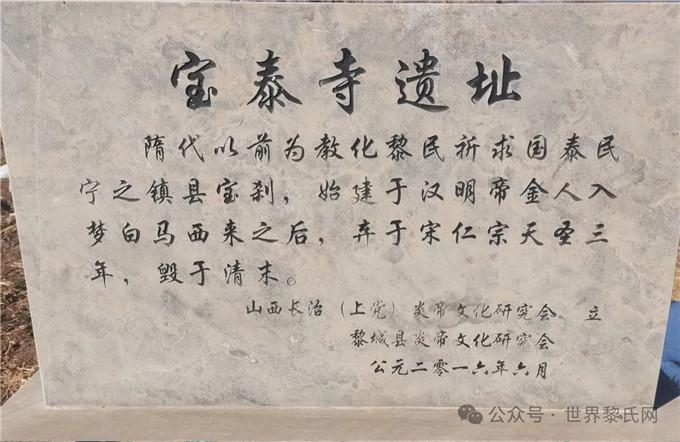 宝泰寺遗址
隋代以前为教化黎民祈求国泰民
宁之镇县宝刹，始建于汉明帝金人入
梦白马西来之后，弃于宋仁宗天圣三
年，毁于清末。
山西长治（上党）炎帝文化研究会 立
黎城县炎帝文化研究会
公元二零一六年六月
公众号·世界黎氏网